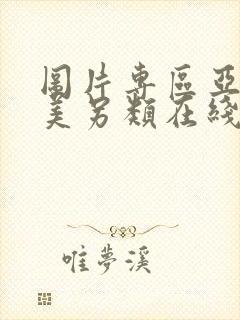 圖片專區亞
美另類在綫
唯夢溪